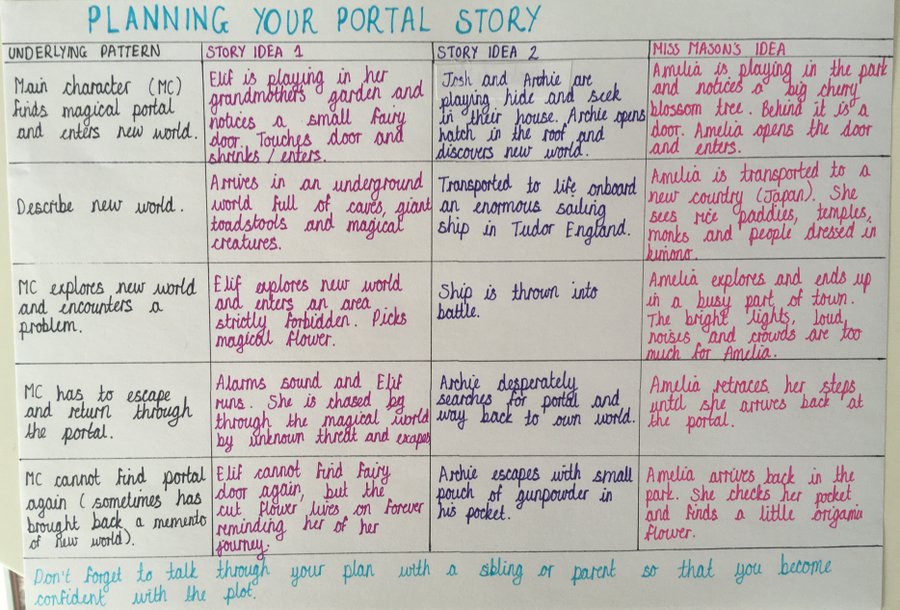 PLANNING YOUR PORTAL STORY
UNDERLYING PATTERN
STORY IDEA 1
STORY IDEA 2
MISS MASON'S IDEA
Main character (MC)
finds magical portal
and enters new world.
Elif is playing in her
grandmothers garden and
notices a small fairy
door. Touches door and
shrinks / enters.
Josh and Archie are
playing hide and seek
in their house. Archie opens
hatch in the roof and
discovers new world.
Amelia is playing in the park
and notices a big cherry
blossom tree. Behind it is a
door. Amelia opens the door
and enters.
Describe new world.
Arrives in an underground
world full of caves, giant
toadstools and magical
creatures.
Transported to life onboard
an enormous sailing
ship in Tudor England.
Amelia is transported to a
new country (Japan). She
sees rice paddies, temples,
monks and people dressed in
kimono.
MC explores new world
and encounters a
problem.
Elif explores new world
and enters an area
strictly forbidden. Picks
magical flower.
Ship is thrown into
battle.
Amelia explores and ends up
in a busy part of town.
The bright lights, loud
noises and crowds are too
much for Amelia.
MC has to escape
and return through
the portal.
Alarms sound and Elif
runs. She is chased by
through the magical world
by unknown threat and exapes
Archie desperately
searches for portal and
way back to own world.
Amelia retraces her steps
until she arrives back at
the portal.
MC cannot find portal
again (sometimes has
brought back a memento
of new world).
Elif cannot find fairy
door again, but the
cut flower lives on forever
reminding her of her
journey.
Archie escapes with small
pouch of gunpowder in
his pocket.
Amelia arrives back in the
park. She checks her pocket
and finds a little origami
flower.
Don't forget to talk through your plan with a sibling or parent so that you become
confident with the plot.